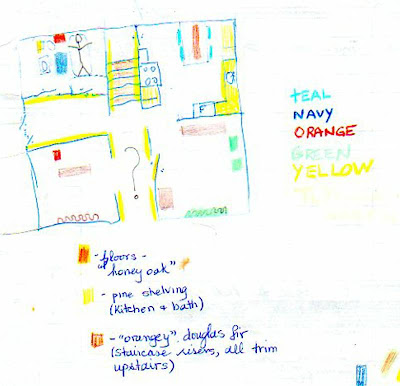 F
?
TEAL
NAVY
ORANGE
GREEN
YELLOW
- floors -
"honey oak"
- pine shelving
(kitchen & bath)
- "orangey" douglas fir
(staircase risers, all trim
upstairs)